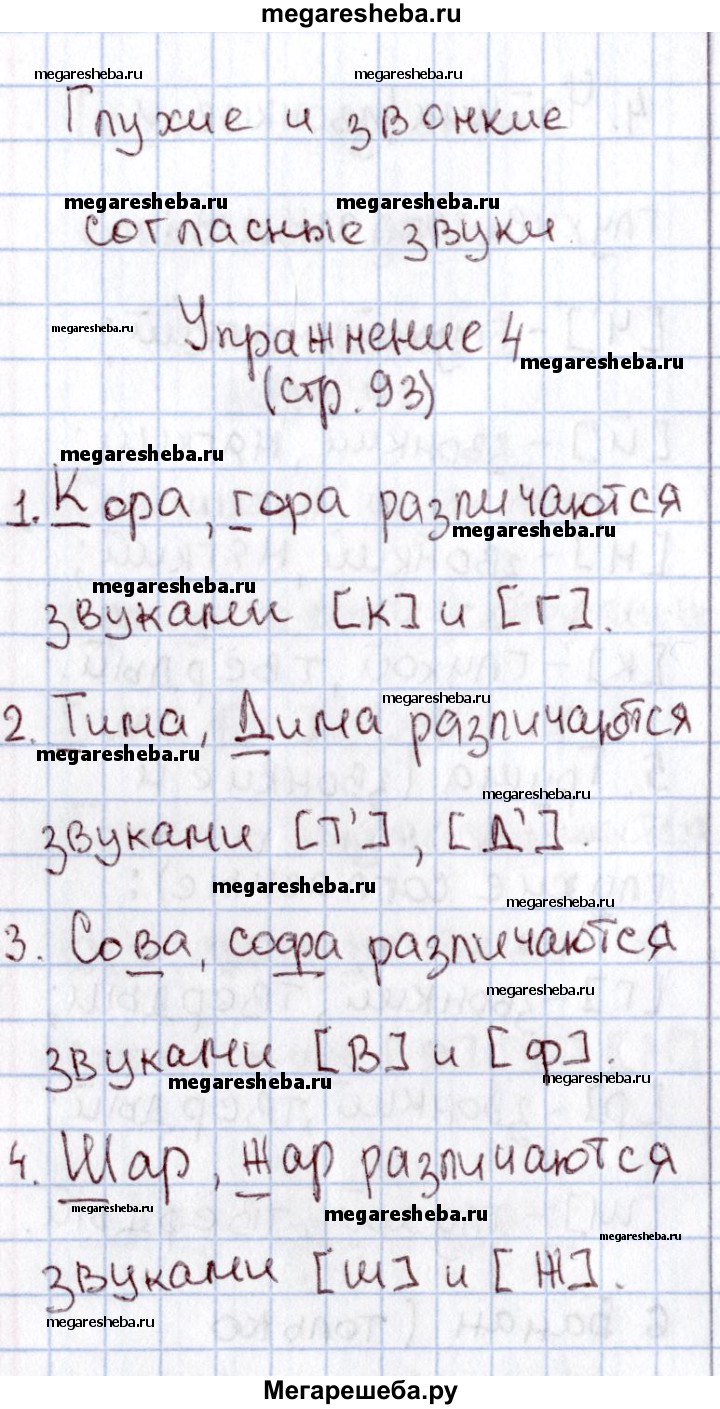 megaresheba.ru
megaresheba.ru megaresheba.ru
Глухие и звонкие
megaresheba.ru megaresheba.ru
согласные звуки
megaresheba.ru
Упражнение 4
megaresheba.ru
(стр. 93)
megaresheba.ru
1. Кора, гора различаются
megaresheba.ru
megaresheba.ru
звуками [к] и [г].
megaresheba.ru
2. Тима, Дима различаются
megaresheba.ru
megaresheba.ru
звуками [т'], [д'].
megaresheba.ru
megaresheba.ru
3. Сова, софа различаются
megaresheba.ru
звуками [в] и [ф].
megaresheba.ru megaresheba.ru
4. Шар, жар различаются
megaresheba.ru megaresheba.ru
megaresheba.ru
звуками [ш] и [ж].
megaresheba.ru
Мегарешеба.ру